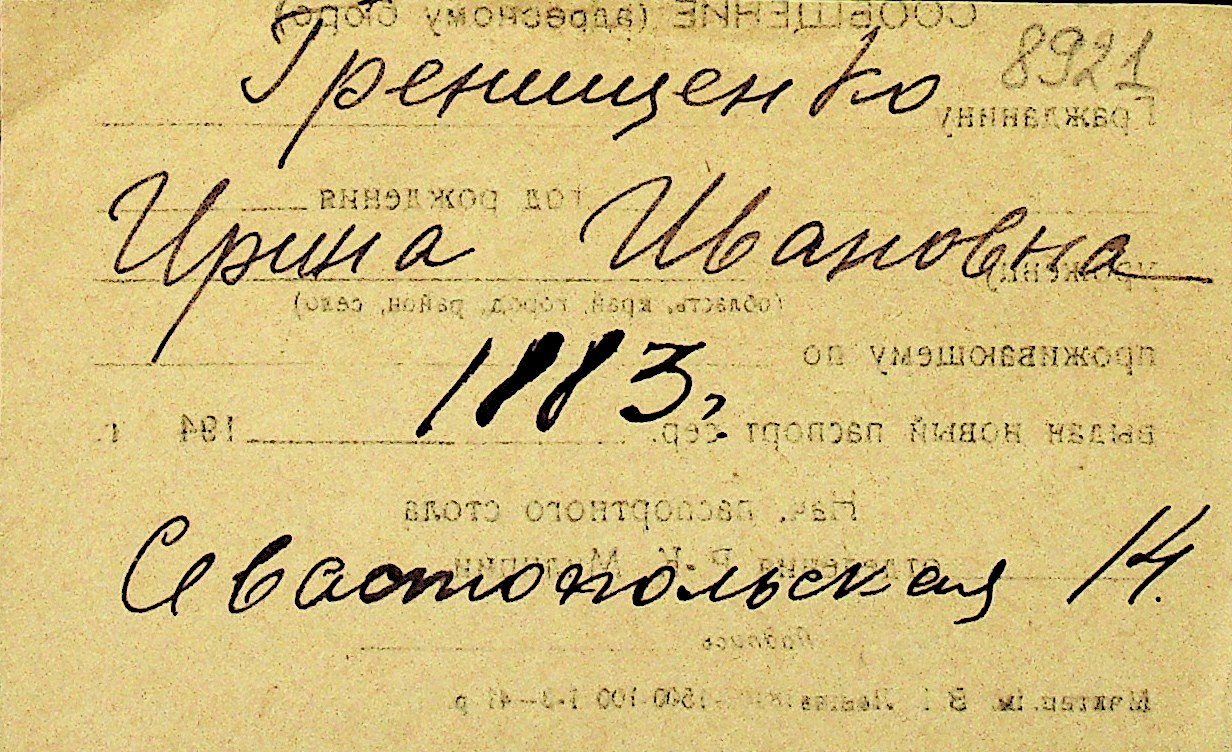 СООБЩЕНИЕ (адресному бюро)
8921
Гренищенко
Гражданину
год рождения
Ирина Ивановна
уроженцу
(область, край, город, район, село)
1883,
проживающему по
выдан новый паспорт сер. 194 г.
Нач. паспортного стола
отделения Р.-К. Милиции
Севастопольская 14.
Подпись